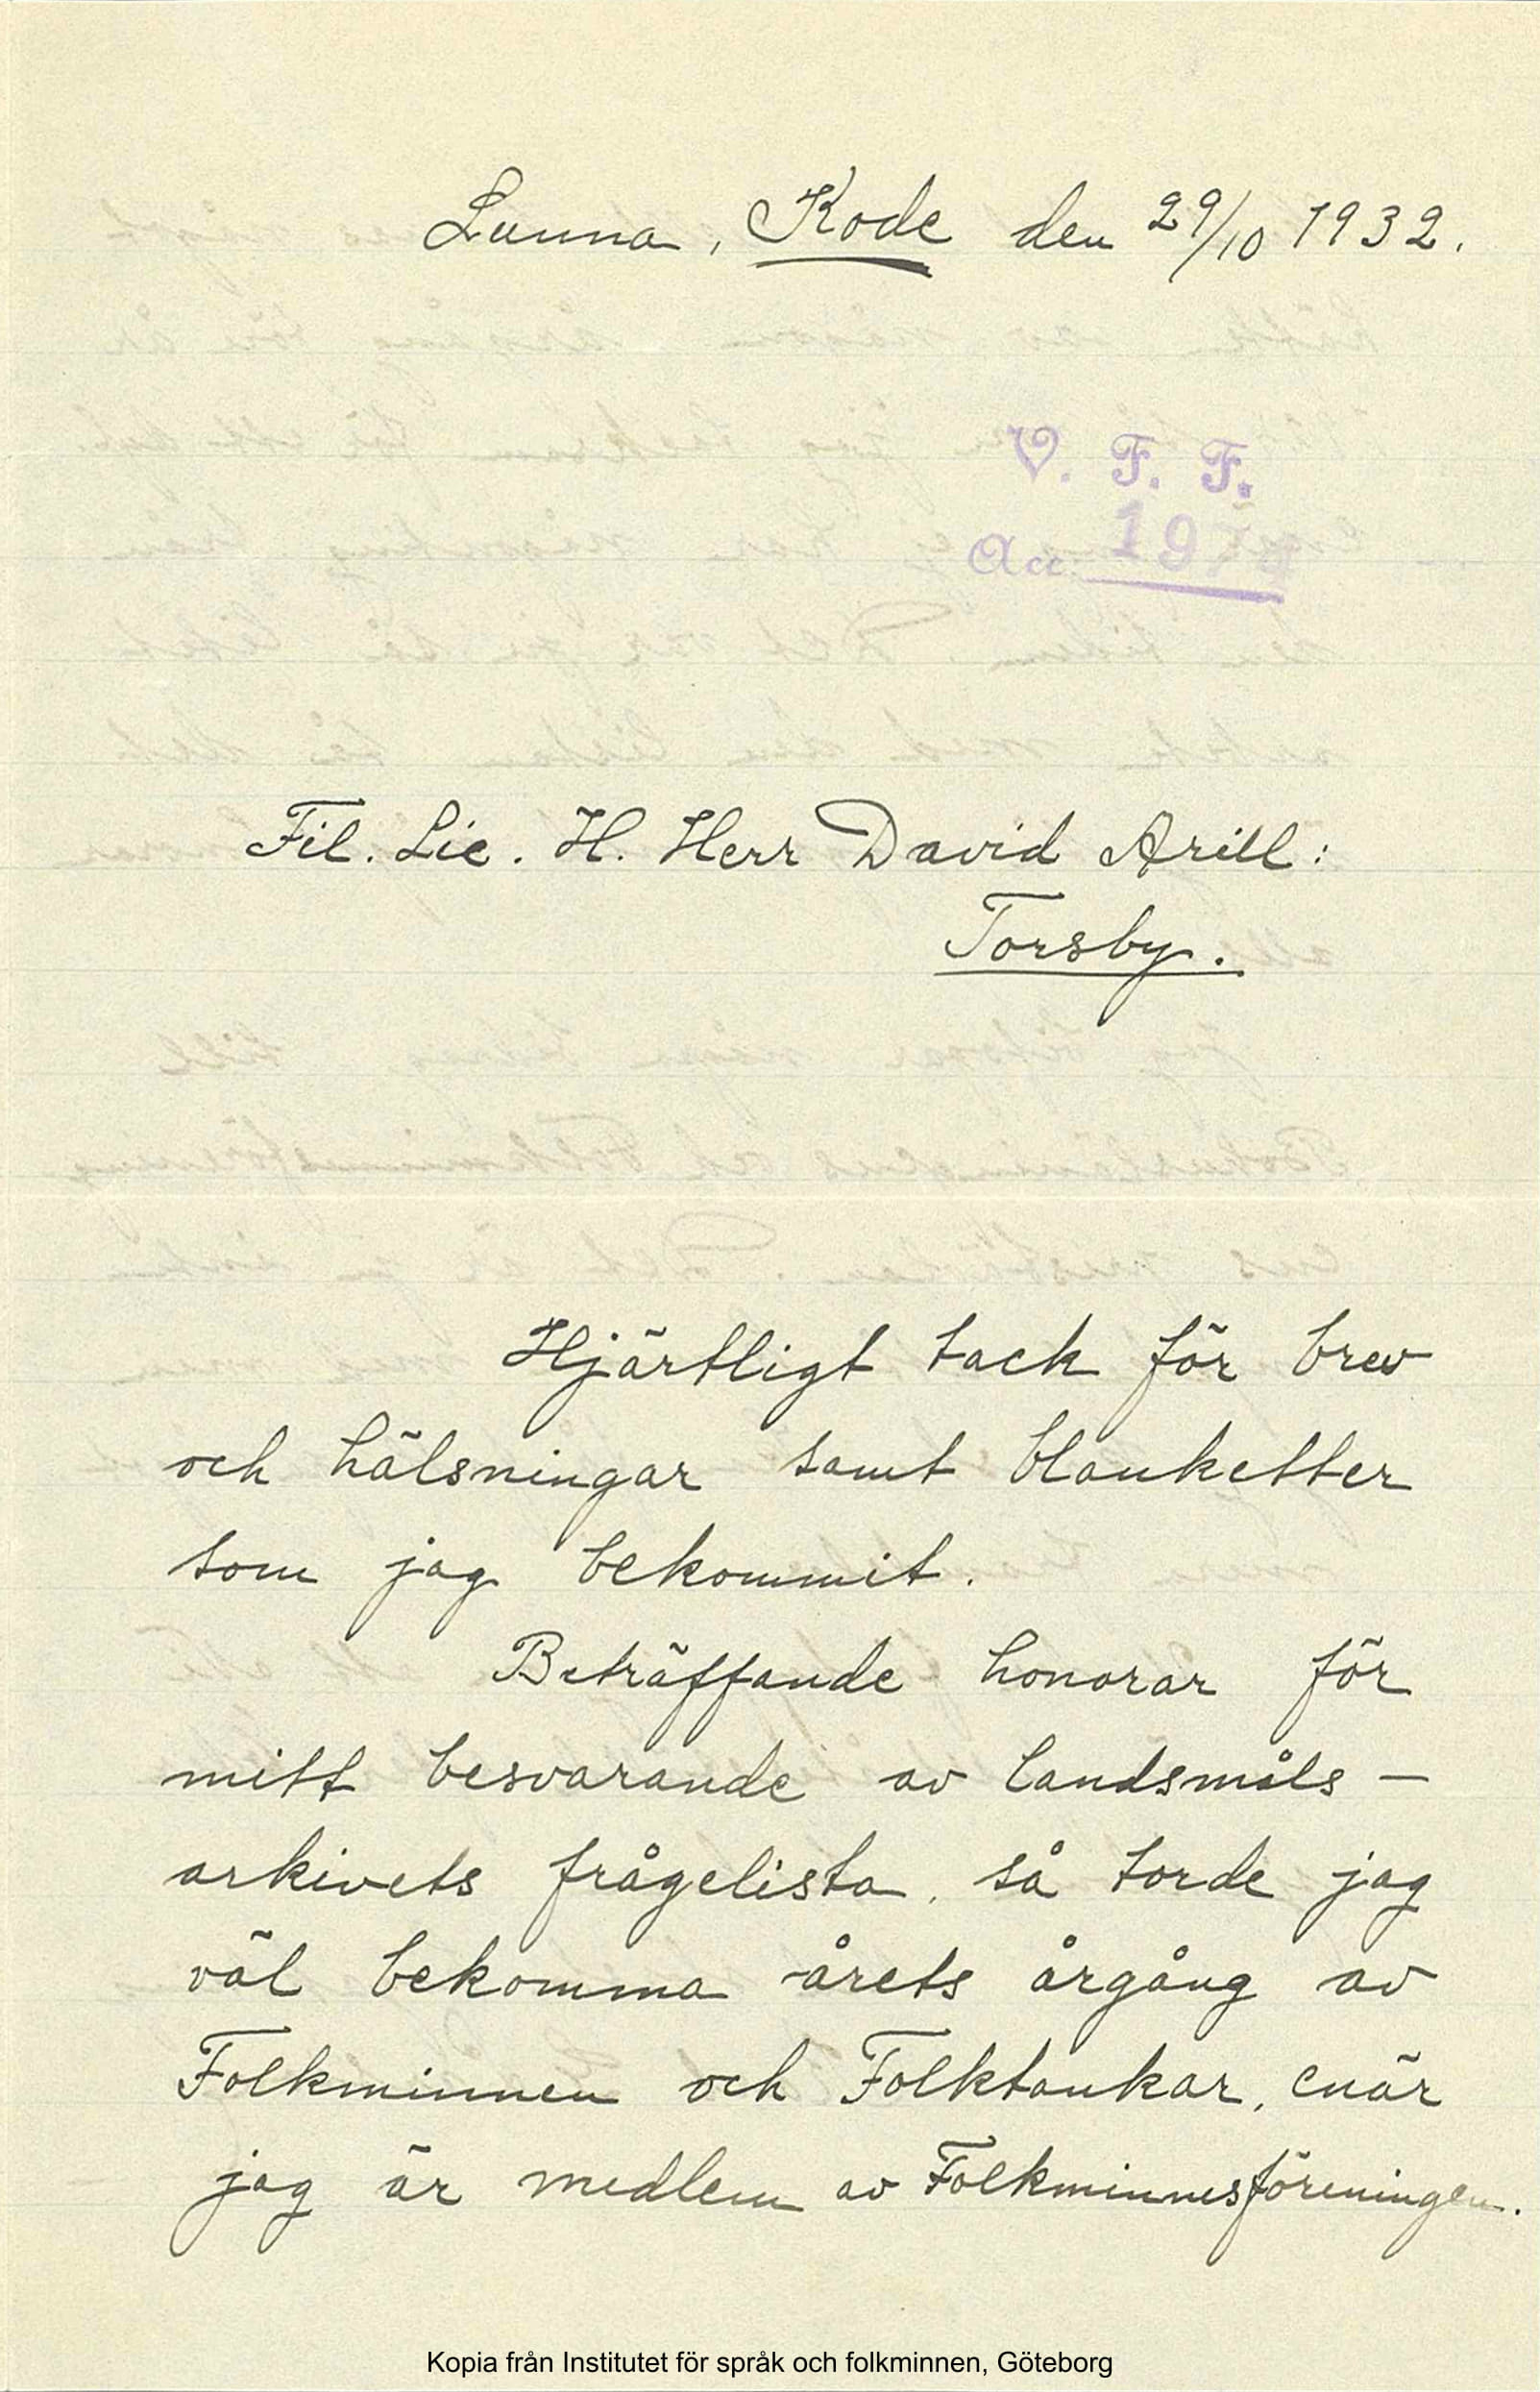 Lunna, Kode den 29/10 1932.
V. F. F.
Acc.
Fil. Lic. H. Herr David Arill:
Torsby.
Hjärtligt tack för brev
och hälsningar samt blanketter
som jag bekommit.
Beträffande honorar för
mitt besvarande av landsmåls-
arkivets frågelista, så torde jag
väl bekomma årets årgång av
Folkminnen och Folktankar, enär
jag är medlem av Folkminnesföreningen.
Kopia från Institutet för språk och folkminnen, Göteborg